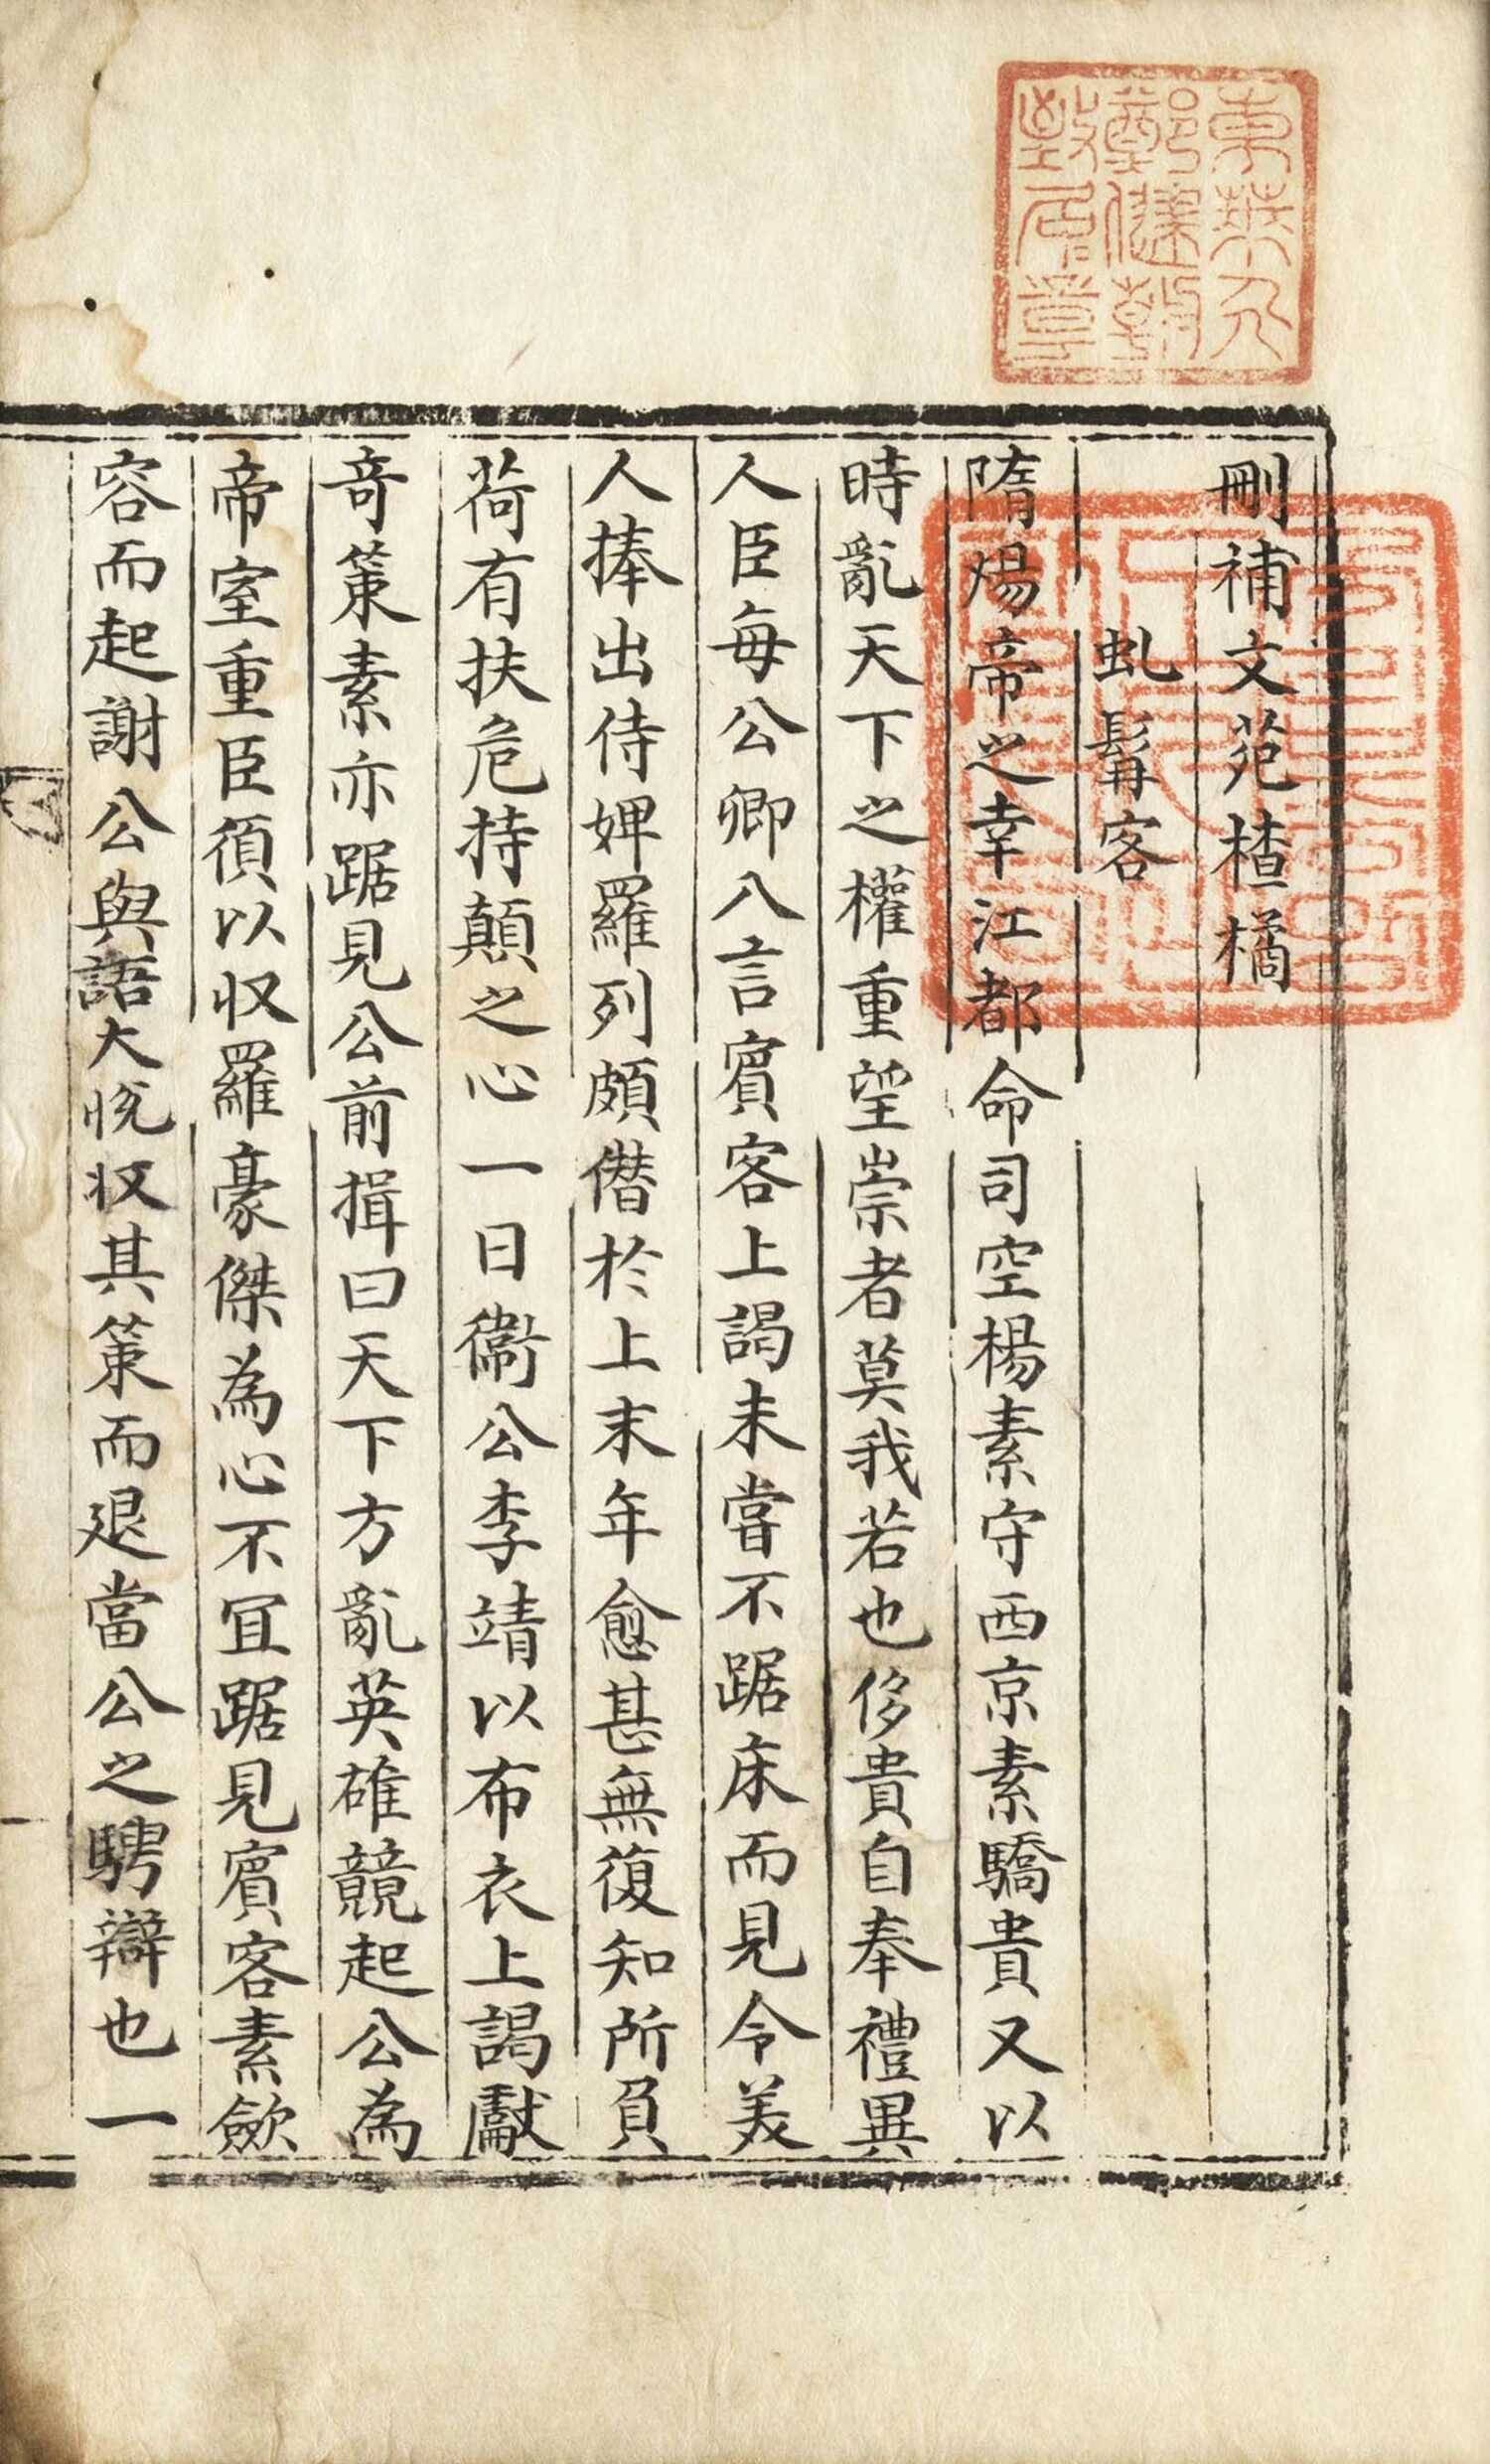 東萊人
鄭健朝
致居章
刪補文苑楂橘
虬髯客
隋煬帝之幸江都命司空楊素守西京素驕貴又以
時亂天下之權重望崇者莫我若也侈貴自奉禮異
人臣每公卿入言賓客上謁未嘗不踞床而見令美
人捧出侍婢羅列頗僭於上末年愈甚無復知所負
荷有扶危持顛之心一日衛公李靖以布衣上謁獻
奇策素亦踞見公前揖曰天下方亂英雄競起公為
帝室重臣須以収羅豪傑為心不宜踞見賓客素斂
容而起謝公與語大恱収其策而退當公之騁辯也一